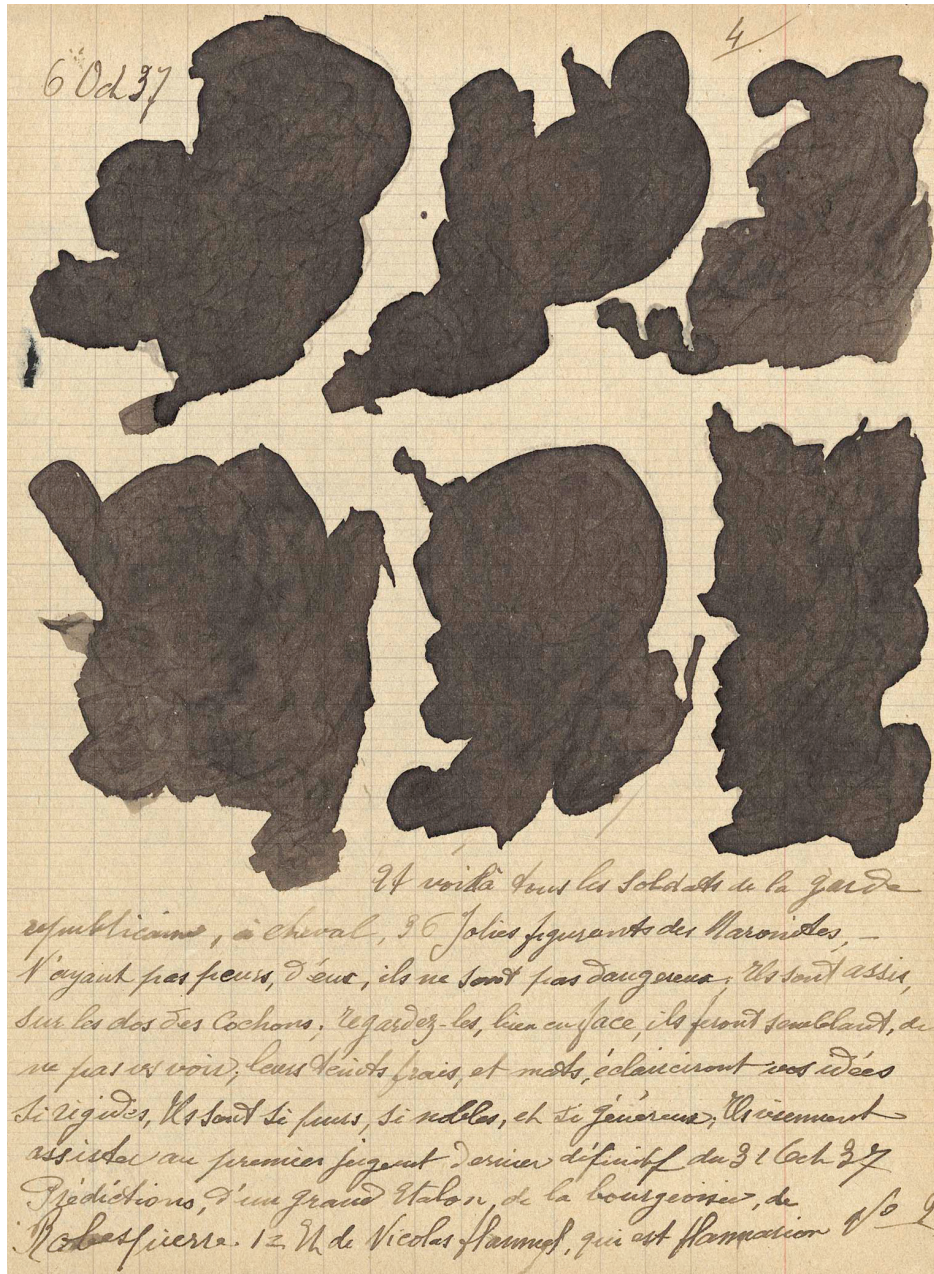 4.
6 Oct 37
Et voilà tous les soldats de la garde
republicaine, à cheval, 36 Jolies figurants des Maronites, –
N'ayant pas peurs, d'eux, ils ne sont pas dangereux; Ils sont assis,
sur les dos des Cochons; regardez-les, bien en face, ils feront semblant, de
ne pas vs voir; leurs teints frais, et mats, éclairciront vos idées
si rigides, Ils sont si purs, si nobles, et si généreux; Ils viennent
assister au premier jugent dernier définitf du 31 Oct 37
Prédictions, d'un grand Etalon, de la bourgeoisie, de
Robespierre. 12 et de Nicolas flammel, qui est flammarion No 2